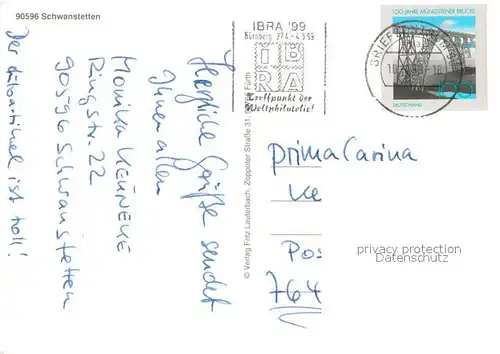 90596 Schwanstetten
Herzliche Grüße sendet
Ihnen allen
Monika
Ringstr. 22
90596 Schwanstetten
Der ist toll!
© Verlag Fritz Lauterbach, Zoppoter Straße 31, Fürth
IBRA '99
Nürnberg 27.4.-4.5.99
IB
RA
Treffpunkt der
Weltphilatelie!
100 JAHRE MÜNGSTENER BRÜCKE
DEUTSCHLAND
100
BRIEF
prima Carina
Pos
764
privacy protection
Datenschutz